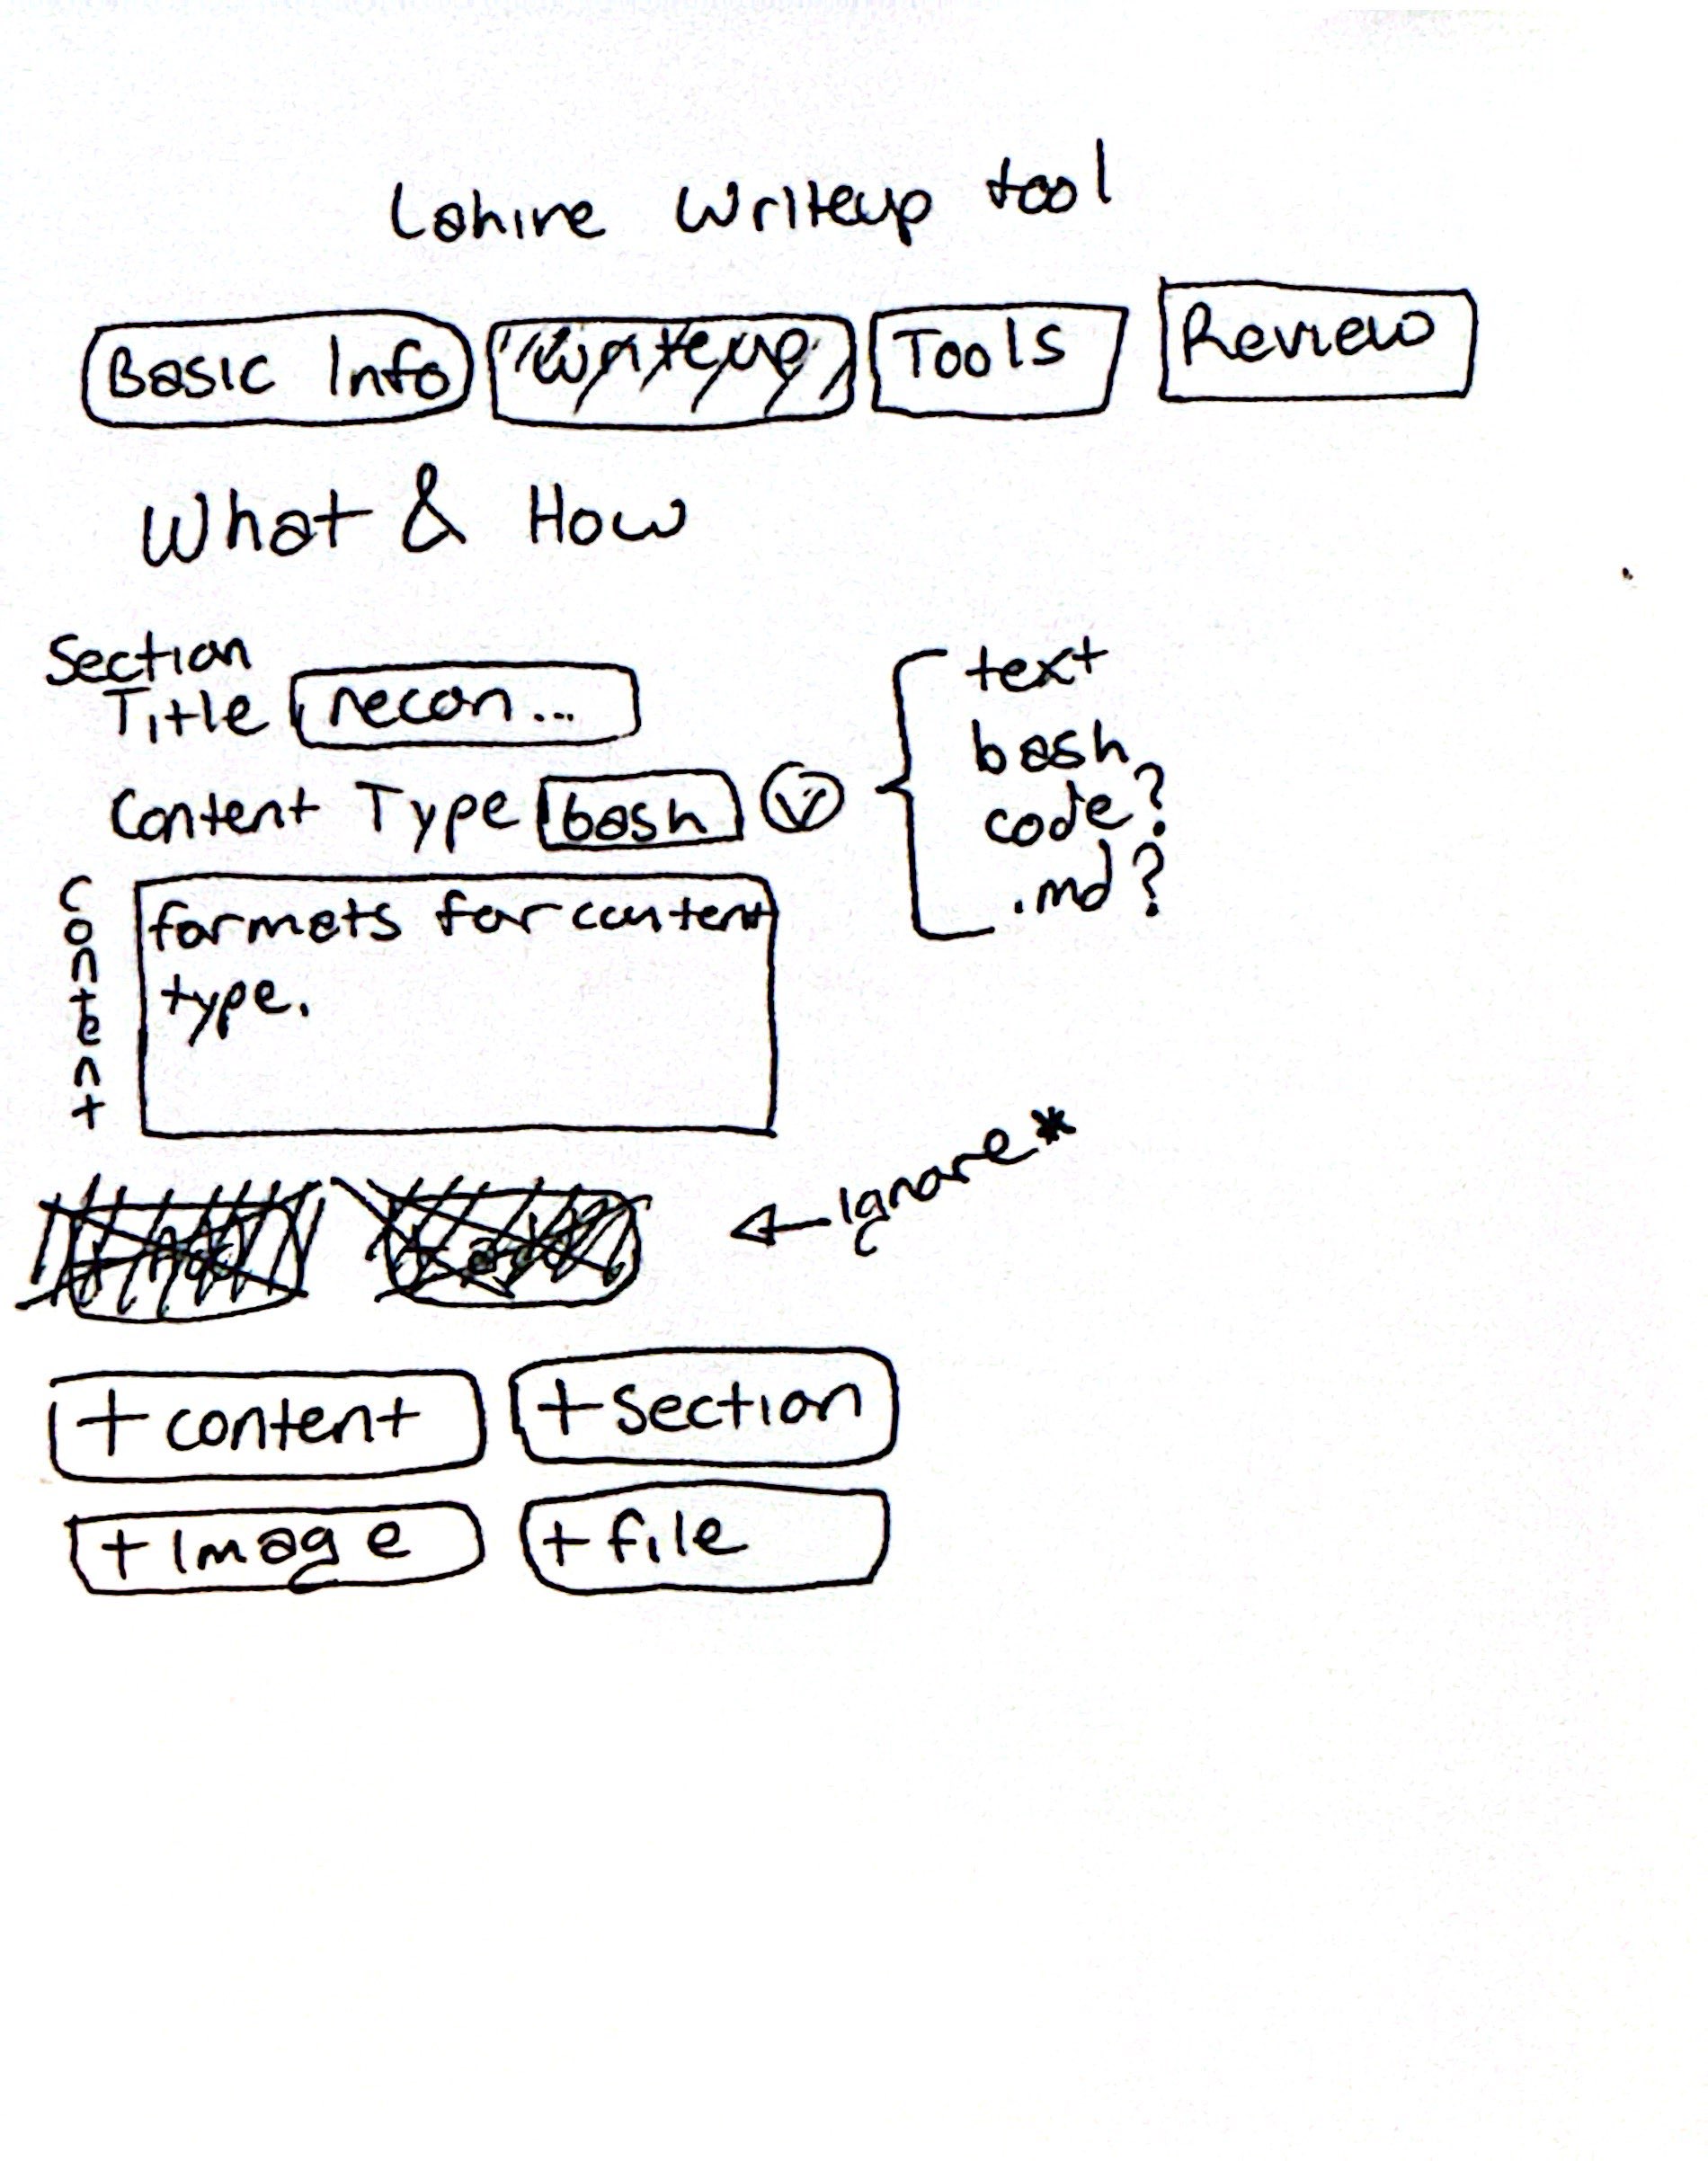 Lahire Writeup tool
Basic Info Writeup Tools Review
What & How
Section
Title recon...
Content Type bash V
text
bash
code?
.md?
Content
formats for content
type.
ignore*
+ content + section
+ Image + file